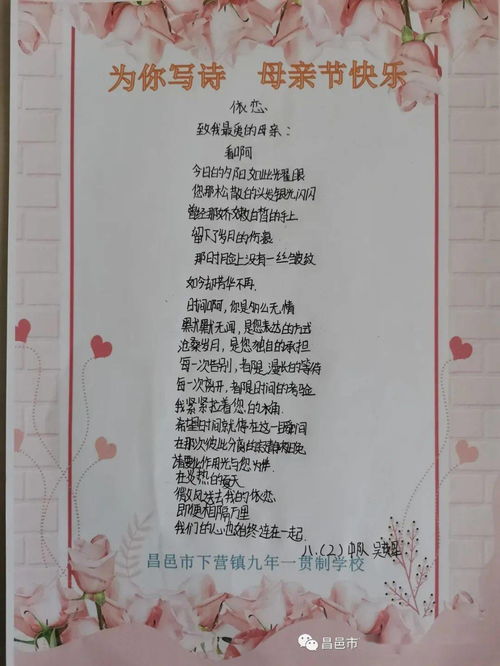 为你写诗 母亲节快乐
依恋
致我最美的母亲：
看啊
今日的夕阳如此耀眼
您那松散的头发银光闪闪
曾经那娇嫩白皙的手上
留下了岁月的伤痕
那时脸上没有一丝皱纹
如今却芳华不再
时间啊，你是多么无情
默默无闻，是您表达的方式
沧桑岁月，是您独自的承担
每一次告别，都是漫长的等待
每一次离开，都是时间的考验
我紧紧拉着您的衣角
希望时间就停在这一瞬间
在那次彼此分离的
在炎热的夏天
微风送去我的依恋
即便相隔万里
我们的心也始终连在一起
八.(2)中队 吴
昌邑市下营镇九年一贯制学校
昌邑市